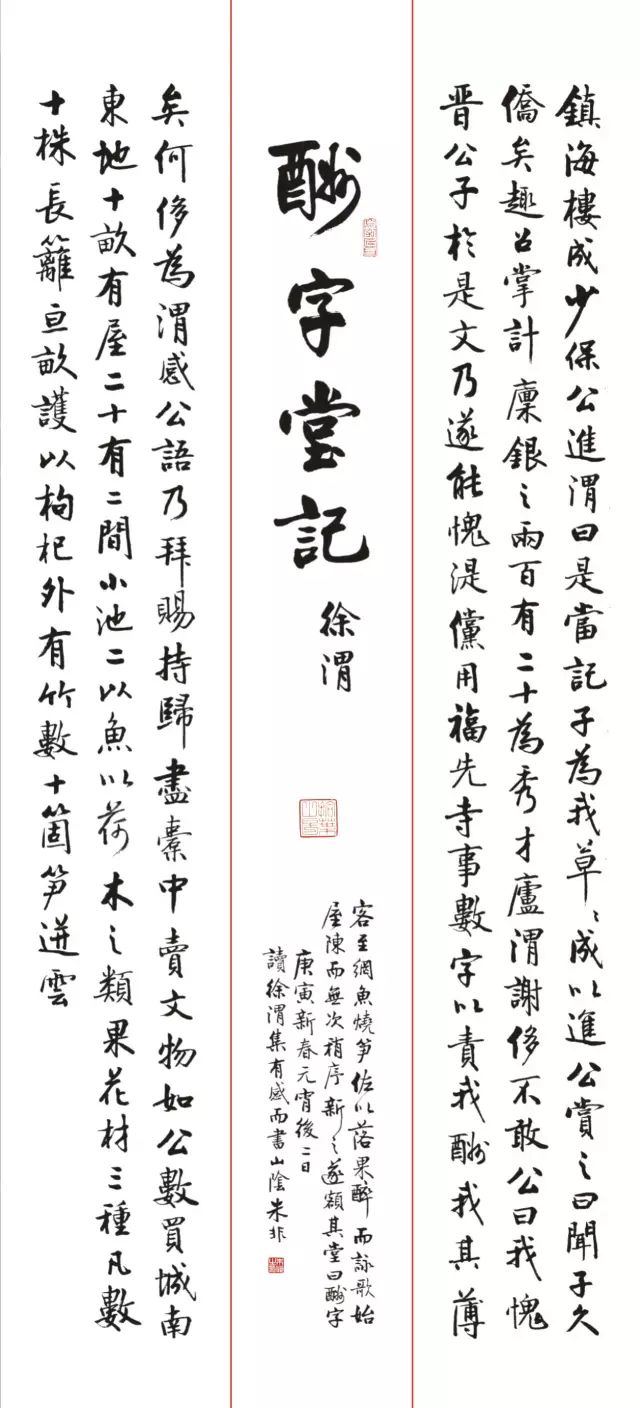 鎮海樓成少保公進渭曰是當記子為我草〻成以進公賞之曰聞子久
僑矣趣召掌計廩銀之兩百有二十為秀才廬渭謝侈不敢公曰我愧
晋公子於是文乃遂能愧湜儻用福先寺事數字以責我酬我其薄
酬字堂記
徐渭
客至網魚燒笋佐以落果醉而詠歌始
屋陳而無次稍序新之遂額其堂曰酬字
庚寅新春元宵後二日
讀徐渭集有感而書山陰朱非
矣何侈為渭感公語乃拜賜持歸盡橐中賣文物如公數買城南
東地十畝有屋二十有二間小池二以魚以荷木之類果花材三種凡數
十株長籬亘畝護以枸杞外有竹數十箇笋迸雲